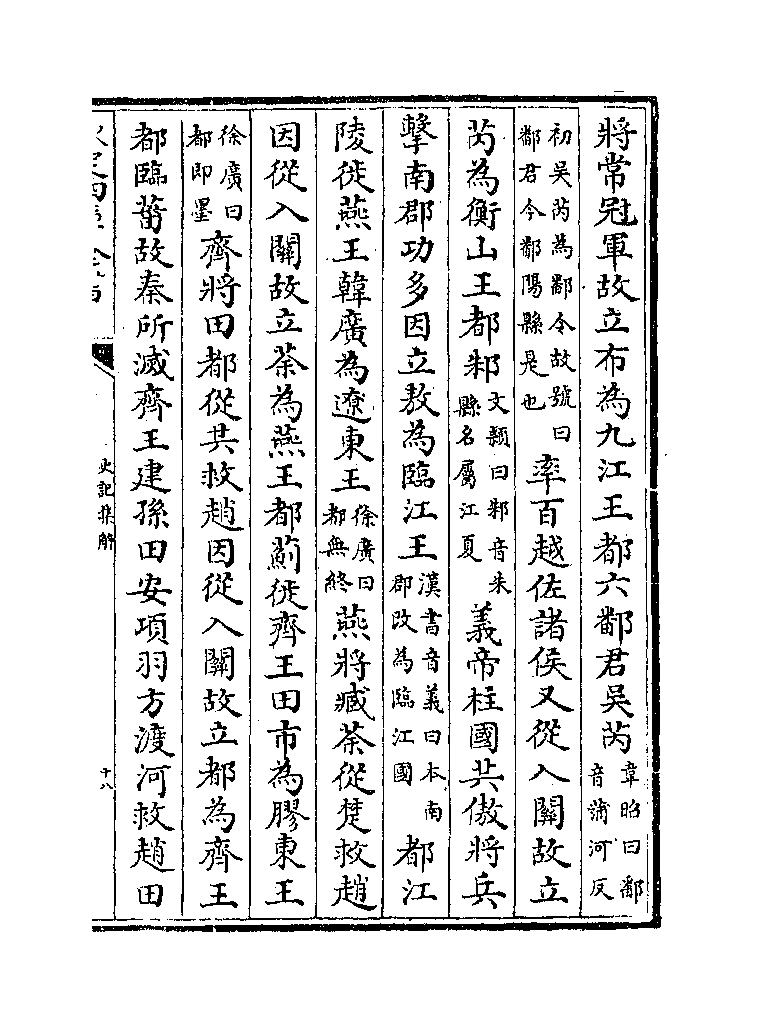 將常冠軍故立布為九江王都六鄱君吳芮韋昭曰鄱音蒲河反
初吳芮為鄱令故號曰鄱君今鄱陽縣是也率百越佐諸侯又從入關故立
芮為衡山王都邾文穎曰邾音朱縣名屬江夏義帝柱國共敖將兵
擊南郡功多因立敖為臨江王漢書音義曰本南郡改為臨江國都江
陵徙燕王韓廣為遼東王徐廣曰都無終燕將臧荼從楚救趙
因從入關故立荼為燕王都薊徙齊王田市為膠東王
徐廣曰都即墨齊將田都從共救趙因從入關故立都為齊王
都臨菑故秦所滅齊王建孫田安項羽方渡河救趙田
史記集解
十八